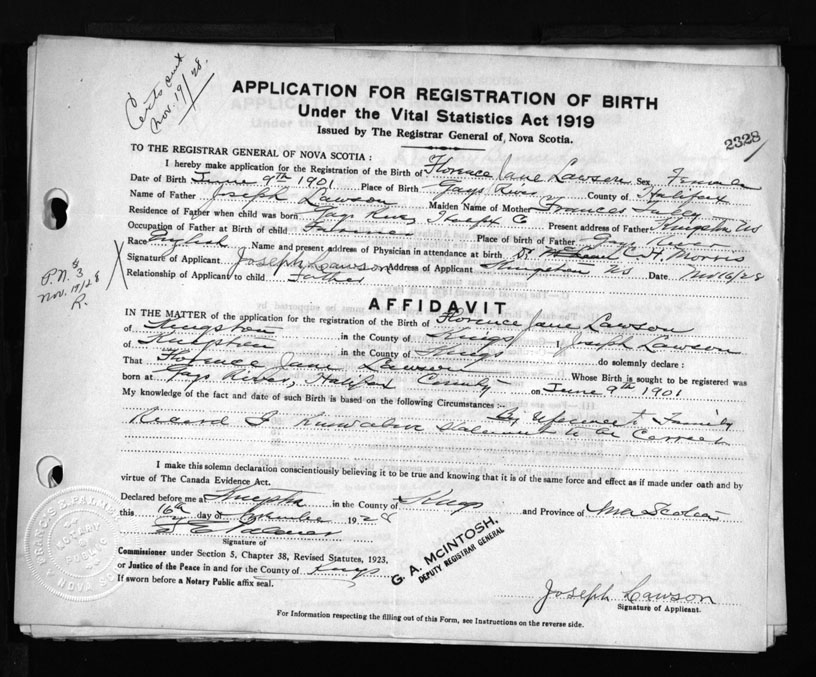 Certs sent
Nov. 19/28.
APPLICATION FOR REGISTRATION OF BIRTH
Under the Vital Statistics Act 1919
Issued by The Registrar General of, Nova Scotia.
2328
TO THE REGISTRAR GENERAL OF NOVA SCOTIA :
I hereby make application for the Registration of the Birth of Florence Jane Lawson Sex Female
Date of Birth June 9th 1901 Place of Birth Gays River County of Halifax
Name of Father Joseph Lawson Maiden Name of Mother Frances
Residence of Father when child was born Gays River Halifax Co Present address of Father Kingston NS
Occupation of Father at Birth of child Farmer Place of birth of Father Gays River
Race English Name and present address of Physician in attendance at birth Dr C. H. Morris
Signature of Applicant Joseph Lawson Address of Applicant Kingston NS Date Nov 16/28
Relationship of Applicant to child Father
P.N. 3
Nov. 19/28
R.
AFFIDAVIT
IN THE MATTER of the application for registration of the Birth of Florence Jane Lawson
of Kingston in the County of Kings I Joseph Lawson
of Kingston in the County of Kings do solemnly declare :
That Florence Jane Lawson Whose Birth is sought to be registered was
born at Gays River, Halifax County on June 9th 1901
My knowledge of the fact and date of such Birth is based on the following Circumstances :- By reference to Family
Record I know above statement to be correct
I make this solemn declaration conscientiously believing it to be true and knowing that it is of the same force and effect as if made under oath and by
virtue of The Canada Evidence Act.
Declared before me at Kingston in the County of Kings and Province of Nova Scotia
this 16th day of November 1928
Signature of
Commissioner under Section 5, Chapter 38, Revised Statutes, 1923,
or Justice of the Peace in and for the County of Kings
If sworn before a Notary Public affix seal.
G. A. McINTOSH,
DEPUTY REGISTRAR GENERAL
Joseph Lawson
Signature of Applicant.
For Information respecting the filling out of this Form, see Instructions on the reverse side.